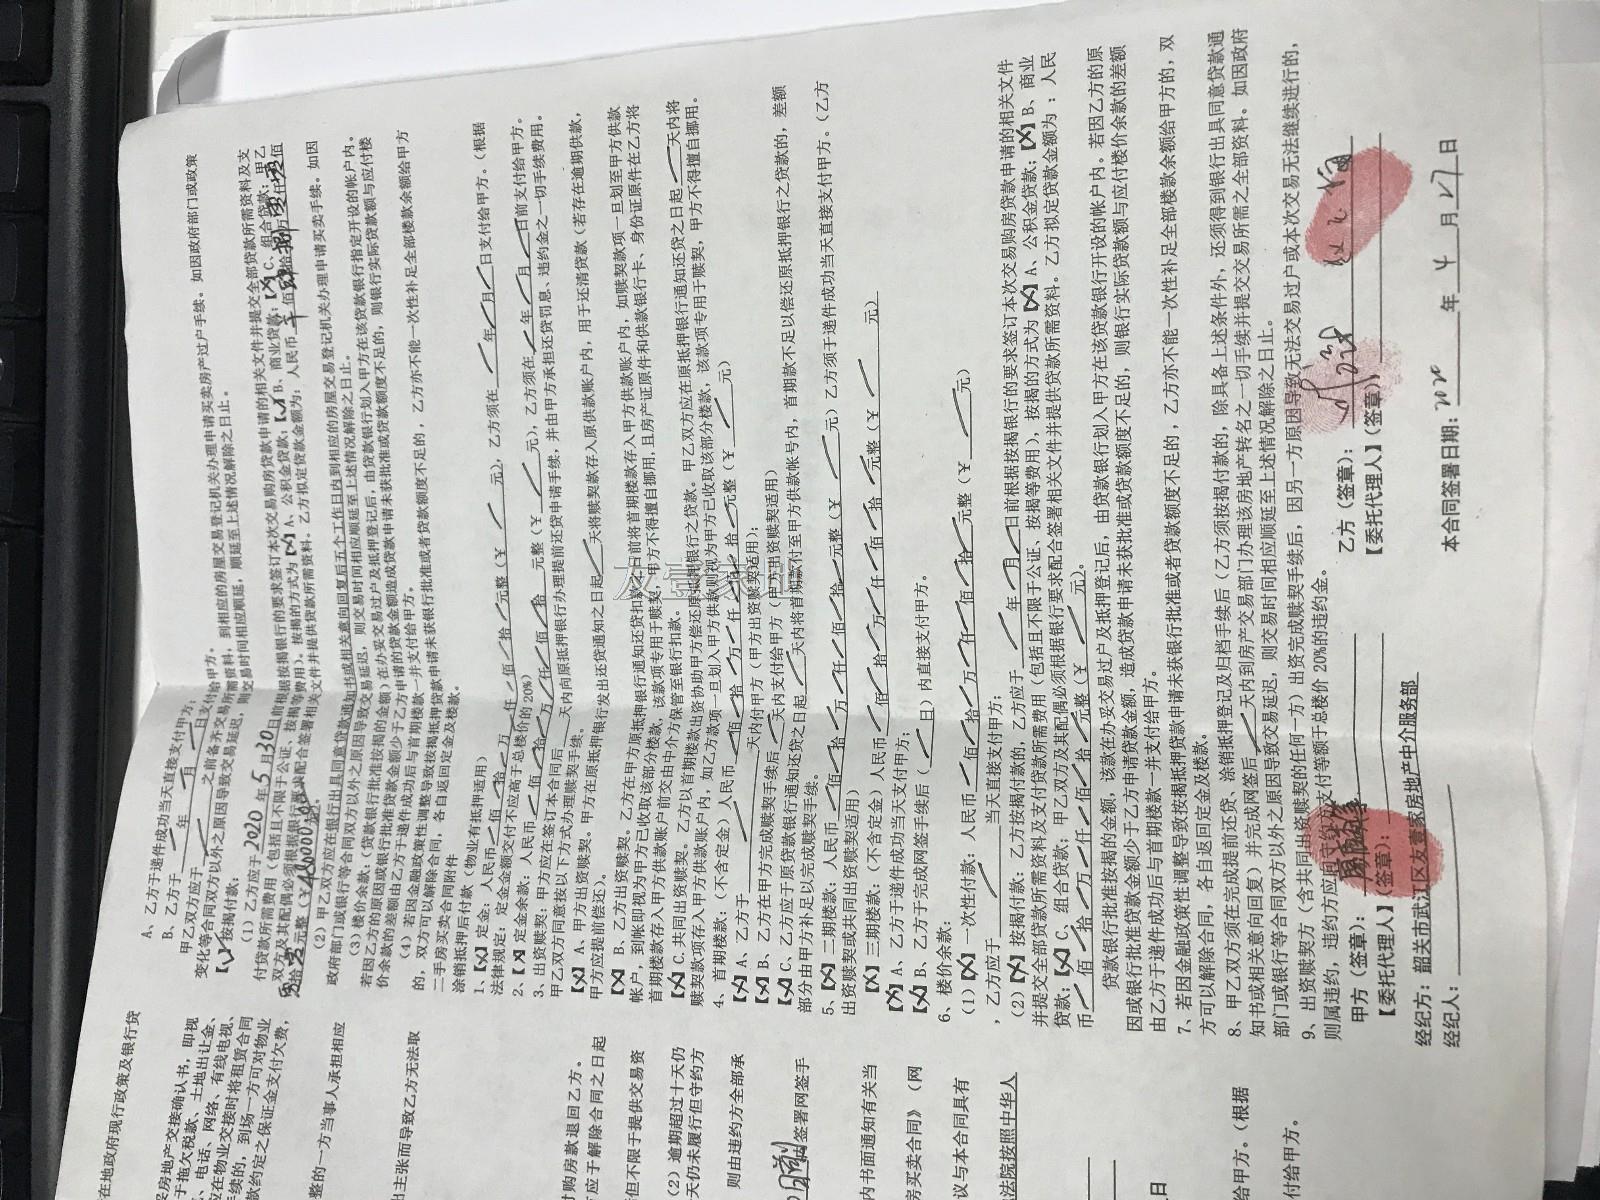 A、乙方于递件成功当天直接支付甲方；
B、乙方于 年 月 日支付给甲方。
甲乙双方应于 之前备齐交易所需资料，到相应的房屋交易登记机关办理申请买卖房产过户手续。如因政府部门或政策
变化等合同双方以外之原因导致交易延迟，则交易时间相应顺延，顺延至上述情况解除之日止。
按揭付款：
（1）乙方应于2020年5月30日前根据按揭银行的要求签订本次交易购房贷款申请的相关文件并提交全部贷款所需资料及支
付贷款所需费用（包括且不限于公证、按揭等费用），按揭的方式为【X】A、公积金贷款；【√】B、商业贷款；【X】C、组合贷款；甲乙
双方及其配偶必须根据银行要求配合签署相关文件并提供贷款所需资料，乙方拟定贷款金额为：人民币
（2）甲乙双方应在银行出具同意贷款通知书或相关意向回复后五个工作日内到相应的房屋交易登记机关办理申请买卖手续。如因
政府部门或银行等合同双方以外之原因导致交易延迟，则交易时间相应顺延至上述情况解除之日止。
（3）楼价余款：（贷款银行批准按揭的金额）在办妥交易过户及抵押登记后，由贷款银行划入甲方在该贷款银行指定开设的帐户内。
若因乙方的原因或银行批准贷款金额少于乙方申请的贷款金额造成贷款申请未获批准或贷款额度不足的，则银行实际贷款额与应付楼
价余款的差额由乙方于递件成功后与首期楼款一并支付给甲方。
（4）若因金融政策性调整导致按揭抵押贷款申请未获银行批准或者贷款额度不足的，乙方亦不能一次性补足全部楼款余额给甲方
的，双方可以解除合同，各自返回定金及楼款。
二手房买卖合同附件
涂销抵押后付款（物业有抵押适用）
1、【X】定金：人民币 佰 拾 万 仟 佰 拾 元整（￥ 元），乙方须在 年 月 日支付给甲方。（根据
法律规定：定金金额交付不应高于总楼价的20%）
2、【X】定金余款：人民币 佰 拾 万 仟 佰 拾 元整（￥ 元），乙方须在 年 月 日前支付给甲方。
3、出资赎契：甲方应在签订本合同后 天内向原抵押银行办理提前还贷申请手续，并由甲方承担还贷罚息、违约金之一切手续费用。
甲乙双方同意按以下方式办理赎契手续。
【X】A、甲方出资赎契。甲方在原抵押银行发出还贷通知之日起 天将赎契款存入原供款账户内，用于还清贷款（若存在逾期供款，
甲方应提前偿还）。
【X】B、乙方出资赎契。乙方在甲方原抵押银行通知还贷扣款之日前将首期楼款存入甲方供款账户内，如赎契款项一旦划至甲方供款
帐户，到帐即视为甲方已收取该部分楼款，该款项专用于赎契，甲方不得擅自挪用，且房产证原件和供款银行卡、身份证原件在乙方将
首期楼款存入甲方供款账户前交由中介方保管至银行扣款。
【X】C、共同出资赎契。乙方以首期楼款出资协助甲方偿还原抵押银行之贷款。甲乙双方应在原抵押银行通知还贷之日起 天内将
赎契款项存入甲方供款账户内，如乙方款项一旦划入甲方供款则视为甲方已收取该部分楼款，该款项专用于赎契，甲方不得擅自挪用。
4、首期楼款：（不含定金）人民币 佰 拾 万 仟 佰 拾 元整（￥ 元）
【X】A、乙方于 天内付甲方（甲方出资赎契适用）；
【X】B、乙方在甲方完成赎契手续后 天内支付给甲方（甲方出资赎契适用）
【X】C、乙方应于原贷款银行通知还贷之日起 天内将首期款付至甲方供款帐号内，首期款不足以偿还原抵押银行之贷款的，差额
部分由甲方补足以完成赎契手续。
5、【X】二期楼款：人民币 佰 拾 万 仟 佰 拾 元整（￥ 元）乙方须于递件成功当天直接支付甲方。（乙方
出资赎契或共同出资赎契适用）
【X】三期楼款：（不含定金）人民币 佰 拾 万 仟 佰 拾 元整（￥ 元）
【X】A、乙方于递件成功当天支付甲方；
【X】B、乙方于完成网签手续后（ 日）内直接支付甲方。
6、楼价余款：
（1）【X】一次性付款：人民币 佰 拾 万 仟 佰 拾 元整（￥ 元）
，乙方应于 当天直接支付甲方；
（2）【X】按揭付款：乙方按揭付款的，乙方应于 年 月 日前根据按揭银行的要求签订本次交易购房贷款申请的相关文件
并提交全部贷款所需资料及支付贷款所需费用（包括且不限于公证、按揭等费用），按揭的方式为【X】A、公积金贷款；【X】B、商业
贷款；【X】C、组合贷款；甲乙双方及其配偶必须根据银行要求配合签署相关文件并提供贷款所需资料。乙方拟定贷款金额为：人民
币 佰 拾 万 仟 佰 拾 元整（￥ 元）。
贷款银行批准按揭的金额，该款在办妥交易过户及抵押登记后，由贷款银行划入甲方在该贷款银行开设的帐户内。若因乙方的原
因或银行批准贷款金额少于乙方申请贷款金额，造成贷款申请未获批准或贷款额度不足的，则银行实际贷款额与应付楼价余款的差额
由乙方于递件成功后与首期楼款一并支付给甲方。
7、若因金融政策性调整导致按揭抵押贷款申请未获银行批准或者贷款额度不足的，乙方亦不能一次性补足全部楼款余额给甲方的，双
方可以解除合同，各自返回定金及楼款。
8、甲乙双方须在完成提前还贷、涂销抵押登记及归档手续后（乙方须按揭付款的，除具备上述条件外，还须得到银行出具同意贷款通
知书或相关意向回复）并完成网签后 天内到房产交易部门办理该房地产转名之一切手续并提交交易所需之全部资料。如因政府
部门或银行等合同双方以外之原因导致交易延迟，则交易时间相应顺延至上述情况解除之日止。
9、出资赎契方（含共同出资赎契的任何一方）出资完成赎契手续后，因另一方原因导致无法交易过户或本次交易无法继续进行的，
则属违约，违约方应向守约方支付等额于总楼价20%的违约金。
甲方（签章）： 乙方（签章）：
【委托代理人】（签章）： 【委托代理人】（签章）：
经纪方：韶关市武江区友壹家房地产中介服务部
经纪人： 本合同签署日期： 年 4 月 27 日
在地政府现行政策及银行贷
买房地产交接确认书，即视
于拖欠税款、土地出让金、
、电话、网络、有线电视、
应在物业交接时将租赁合同
手续的，到场一方可对物业
款约定之保证金支付欠费，
整的一方当事人承担相应
出主张而导致乙方无法取
付购房款退回乙方。
应于解除合同之日起
但不限于提供交易资
（2）逾期超过十天仍
天仍未履行但守约方
则由违约方全部承
签署网签手
内书面通知有关当
房买卖合同》（网
议与本合同具有
法院按照中华人
日
给甲方。（根据
付给甲方。